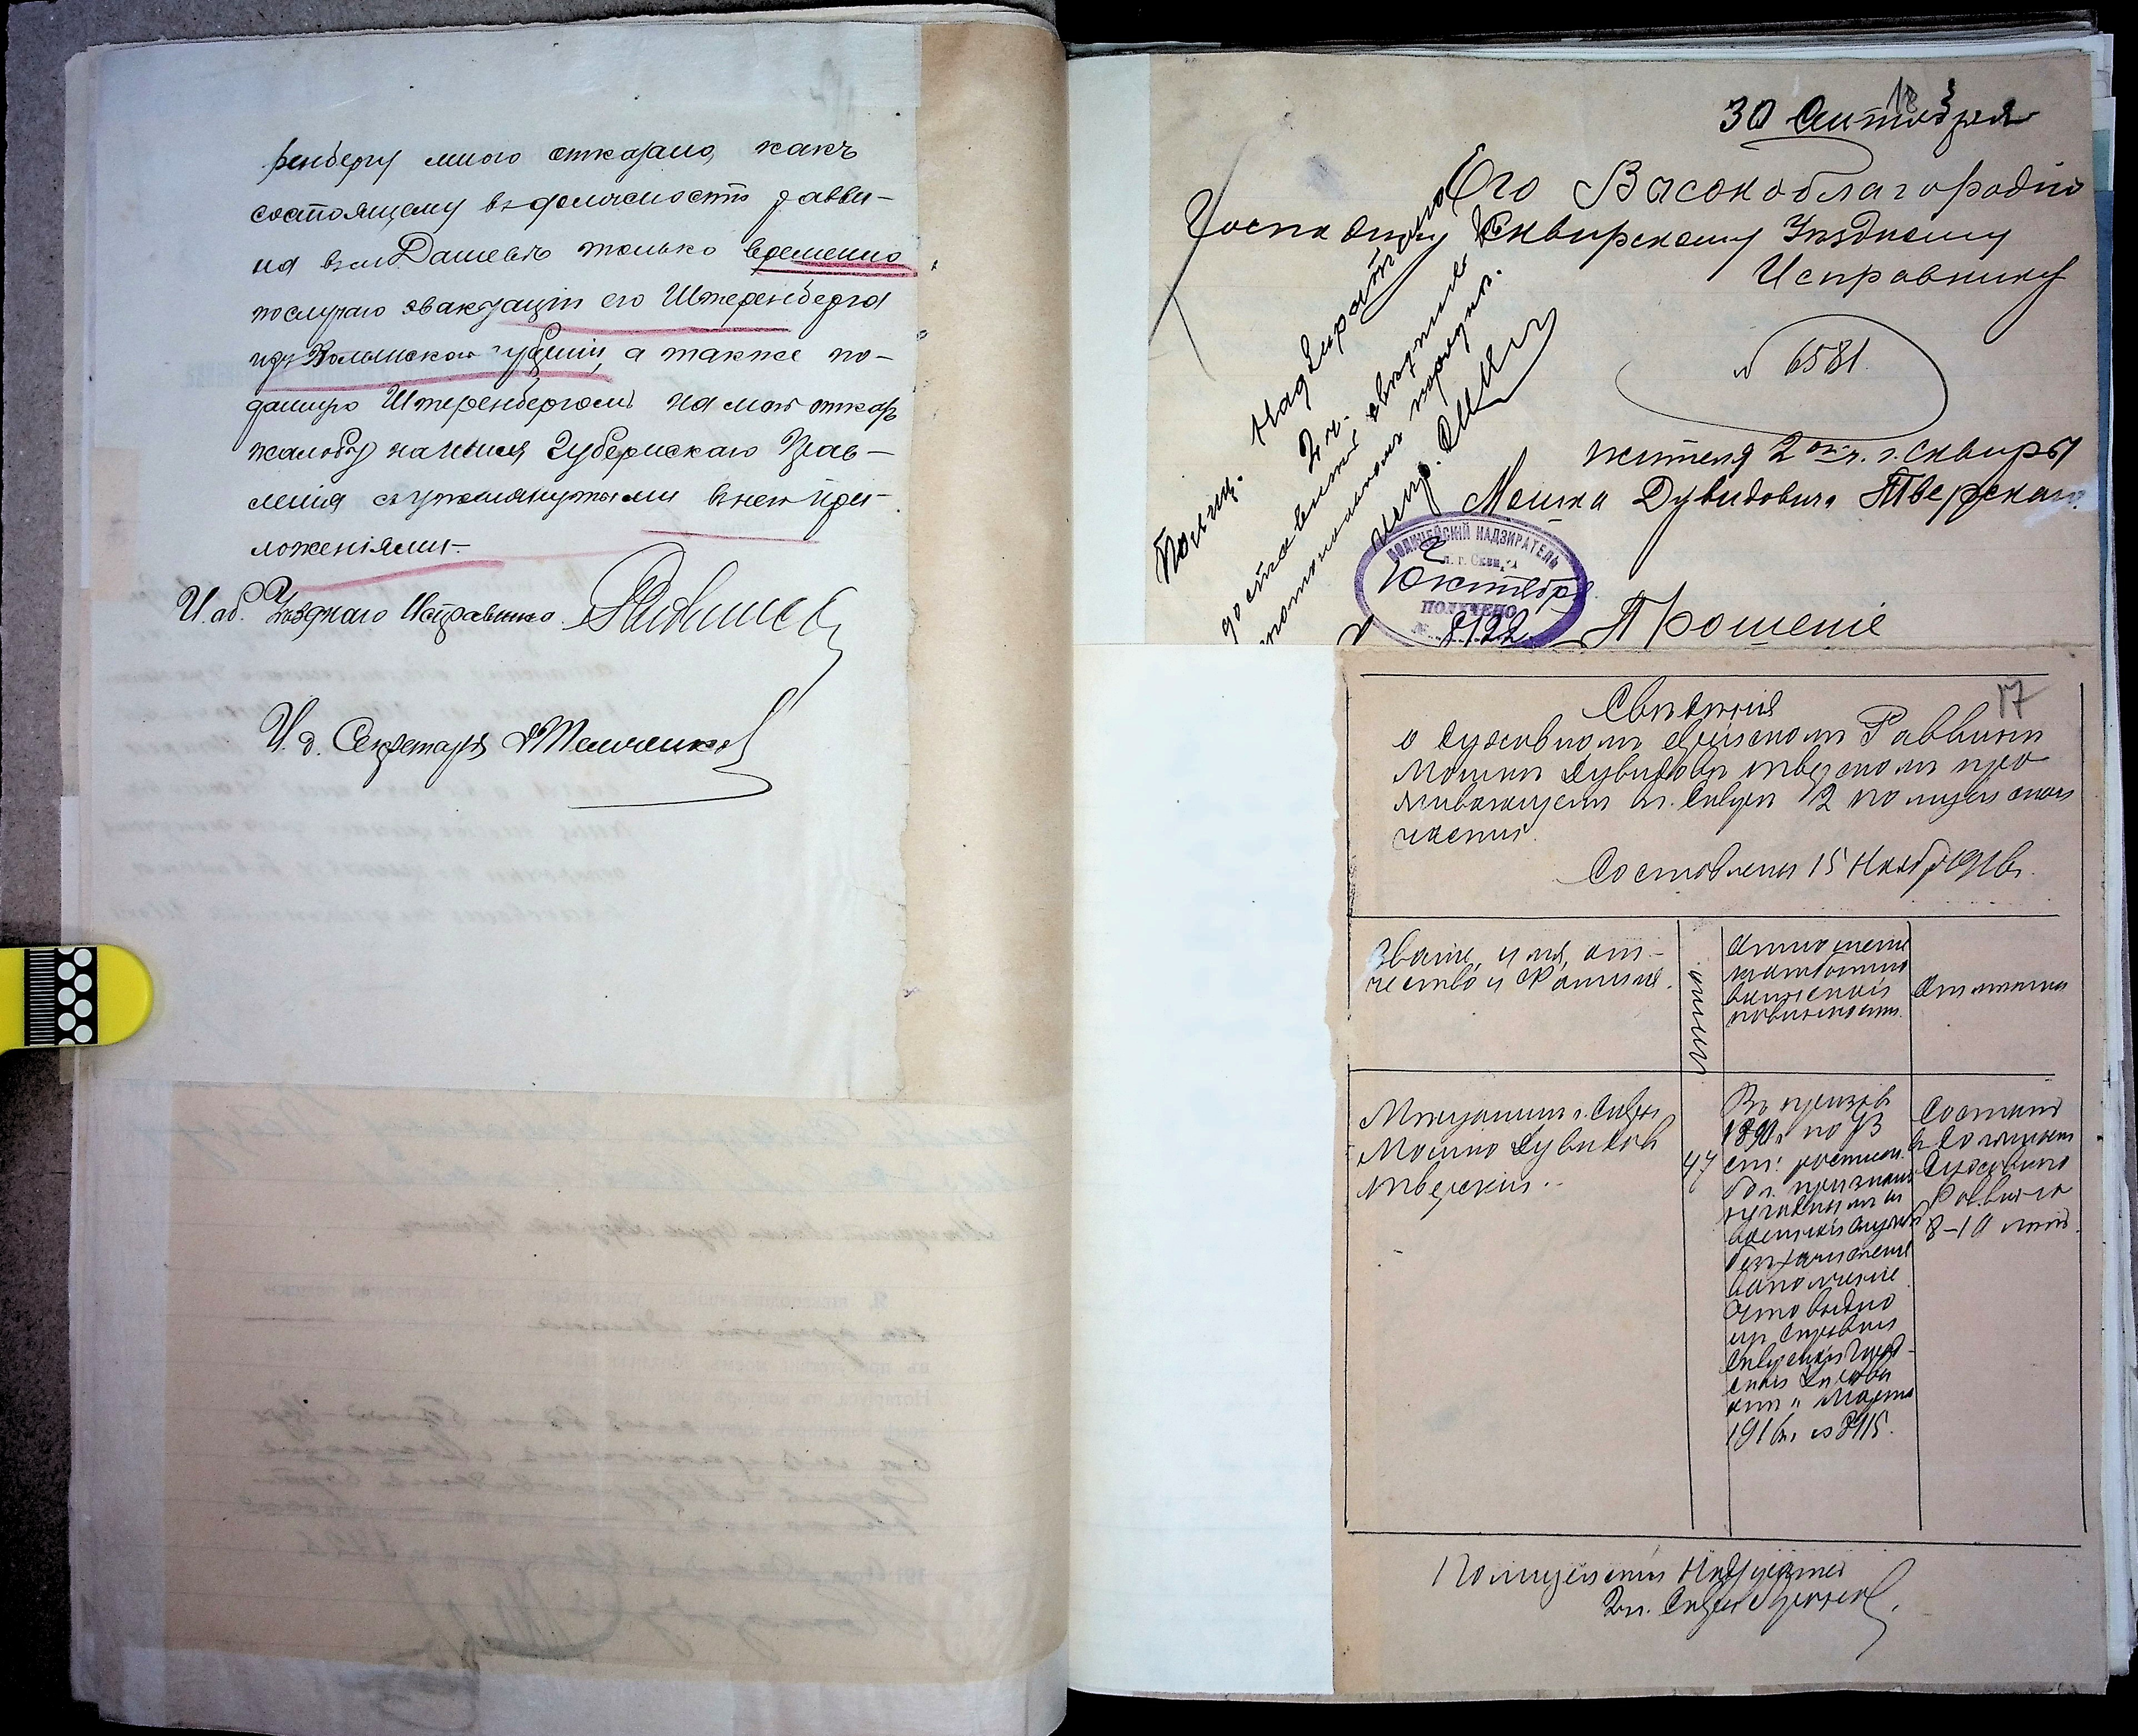 ренбергу мною отказано, какъ
состоящему въ должности равви-
на въ м. Дашевѣ только временно
по случаю эвакуаціи его Штеренберга
изъ Волынской губерніи, а также по-
данную Штеренбергомъ на мой отказъ
жалобу на имя Губернскаго Прав-
ленія съ упомянутыми въ ней при-
ложеніями.
И. об. Уѣзднаго Исправника
И. д. Секретаря
18
30 Октября
Его Высокоблагородію
Господину Сквирскому Уѣздному
Исправнику
№ 6581
жителя 2 ч. г. Сквиры
Мошка Дувидовича Тверскаго
Прошеніе
Полиц. Надзирателю
2 ч.
доставить свѣдѣнія въ
установленномъ порядкѣ.
Испр.
ПОЛИЦЕЙСКІЙ НАДЗИРАТЕЛЬ
2 ч. г. Сквиры
Октября
ПОЛУЧЕНО
17
Свѣдѣнія
о духовномъ еврейскомъ Раввинѣ
Мошкѣ Дувидовѣ Тверскомъ про
живающемъ въ г. Сквирѣ 2 полицейской
части.
Составлены 15 Ноября 1916 г.
Званіе, имя, отче-
чество и Фамилія.
Отношеніе
къ отбыванію
воинской
повинности.
Отмѣтка
Мѣщанинъ г. Сквиры
Мошко Дувидовъ
Тверскій.
47
Въ призывъ
1890 г. по 13
ст. росписан.
бол. признанъ
негоднымъ къ
военной службѣ
безъ зачисленія
въ ополченіе
Что видно
изъ справки
Сквирской Город-
ской Управы
отъ 11 Марта
1916 г. № 2115.
Состоитъ
въ должности
Духовнаго
Раввина
8-10 лѣтъ.
Полицейскій Надзиратель
2 ч. г. Сквиры